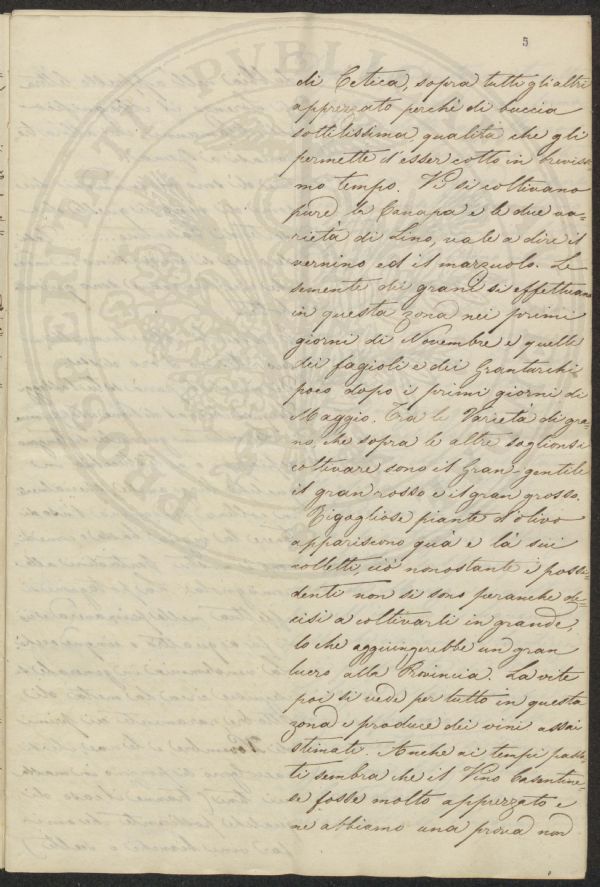 5
di Cetica, sopra tutti gli altri
apprezzato perchè di buccia
sottilissima qualità che gli
permette d'esser cotto in brevissi=
mo tempo. Vi si coltivano
pure la Canapa e le due va=
rietà di Lino, vale a dire il
vernino ed il marzuolo. Le
sementi dei grani si effettuano
in questa zona nei primi
giorni di Novembre e quelle
dei fagioli e dei Granturchi
poco dopo i primi giorni di
Maggio. Tra le Varietà di gra=
no, che sopra le altre soglionsi
coltivare sono il Gran-gentile
il gran rosso e il gran grosso.
Rigogliose piante d'olivo
appariscono quà e là sui
colletti, ciò nonostante i possi=
denti non si sono peranche de=
cisi a coltivarli in grande,
lo che aggiungerebbe un gran
lucro alla Provincia. La vite
poi si vede per tutto in questa
zona e produce dei vini assai
stimati. Anche ai tempi passa=
ti sembra che il Vino Casentine=
se fosse molto apprezzato e
ne abbiamo una prova non